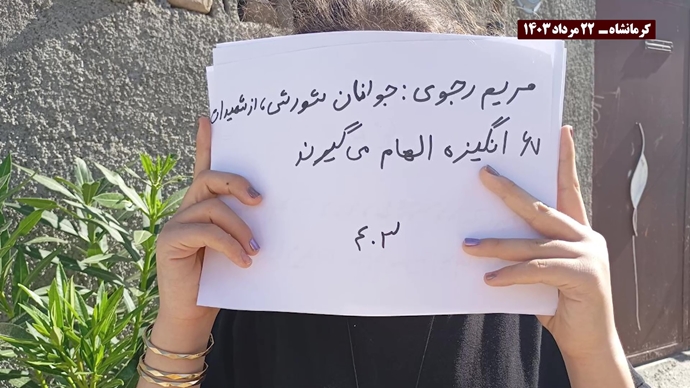 کرمانشاه ــ ۲۲ مرداد ۱۴۰۳
مریم رجوی : جوانان شورشی، از شهیدان
۶۷ انگیزه الهام می‌گیرند
۴۰۳